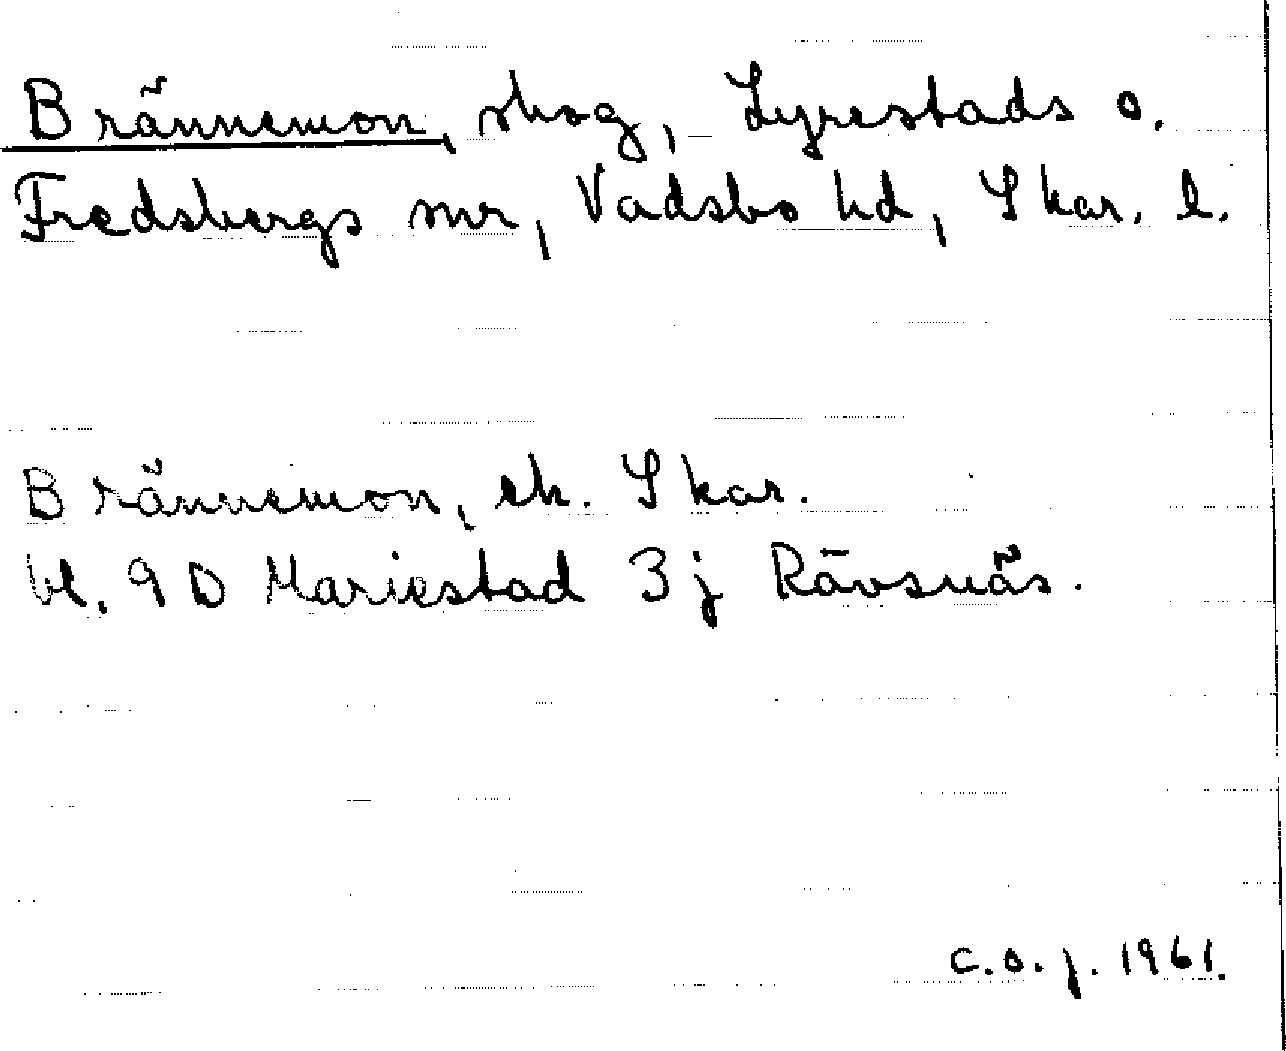 Brännemon, skog, Lyrestads o.
Fredsbergs snr, Vadsbo hd, Skar. l.
Brännemon, ek. Skar.
bl. 9 D Mariestad 3 j Rävsnäs.
C.O.J. 1961.